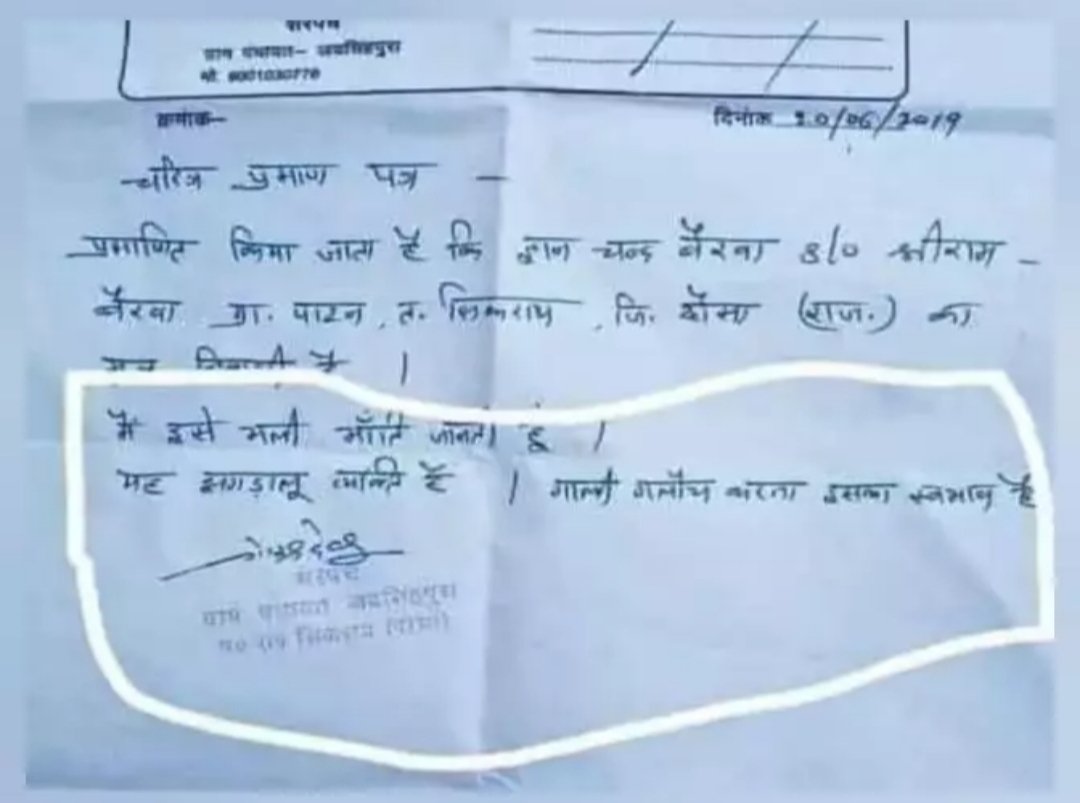 सरपंच
ग्राम पंचायत- जयसिंहपुरा
मो. 9001030776
क्रमांक-
दिनांक 20/06/2019
चरित्र प्रमाण पत्र -
प्रमाणित किया जाता है कि ज्ञान चन्द बैरवा s/o श्रीराम -
बैरवा ग्रा. पाटन, त. सिकराय, जि. दौसा (राज.) का
मूल निवासी है ।
मैं इसे भली भाँति जानती हूं ।
यह झगड़ालू व्यक्ति है । गाली गलौच करना इसका स्वभाव है
सरपंच
ग्राम पंचायत जयसिंहपुरा
पं० स० सिकराय (दौसा)